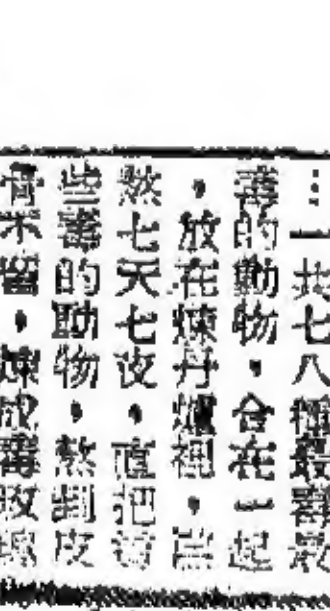 …一共七八種最毒最
毒的動物，合在一起
，放在煉丹爐裡，
熬七天七夜，直把這
些毒的動物，熬到皮
骨不留，煉成毒